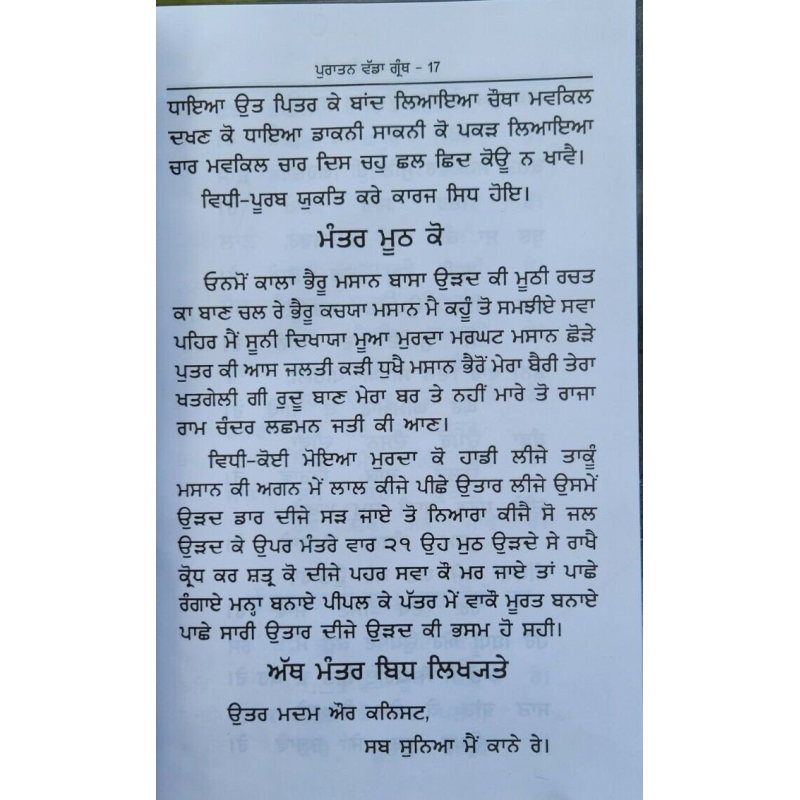 ਪੁਰਾਤਨ ਵੱਡਾ ਗ੍ਰੰਥ - 17
ਧਾਇਆ ਉਤ ਪਿਤਰ ਕੇ ਬਾਂਦ ਲਿਆਇਆ ਚੌਥਾ ਮਵਕਿਲ
ਦਖਣ ਕੋ ਧਾਇਆ ਡਾਕਨੀ ਸਾਕਨੀ ਕੋ ਪਕੜ ਲਿਆਇਆ
ਚਾਰ ਮਵਕਿਲ ਚਾਰ ਦਿਸ ਚਹੁ ਛਲ ਛਿਦ ਕੋਊ ਨ ਖਾਵੈ।
ਵਿਧੀ-ਪੂਰਬ ਯੁਕਤਿ ਕਰੇ ਕਾਰਜ ਸਿਧ ਹੋਇ।
ਮੰਤਰ ਮੂਠ ਕੋ
ਓਨਮੋਂ ਕਾਲਾ ਭੈਰੂ ਮਸਾਨ ਬਾਸਾ ਉੜਦ ਕੀ ਮੂਠੀ ਰਚਤ
ਕਾ ਬਾਣ ਚਲ ਰੇ ਭੈਰੂ ਕਚਯਾ ਮਸਾਨ ਮੈ ਕਹੂੰ ਤੋ ਸਮਝੀਏ ਸਵਾ
ਪਹਿਰ ਮੈਂ ਸੂਨੀ ਦਿਖਾਯਾ ਮੂਆ ਮੁਰਦਾ ਮਰਘਟ ਮਸਾਨ ਛੋੜੇ
ਪੁਤਰ ਕੀ ਆਸ ਜਲਤੀ ਕੜੀ ਧੁਖੈ ਮਸਾਨ ਭੈਰੋਂ ਮੇਰਾ ਬੈਰੀ ਤੇਰਾ
ਖਤਗੇਲੀ ਗੀ ਰੁਦੂ ਬਾਣ ਮੇਰਾ ਬਰ ਤੇ ਨਹੀਂ ਮਾਰੇ ਤੋ ਰਾਜਾ
ਰਾਮ ਚੰਦਰ ਲਛਮਨ ਜਤੀ ਕੀ ਆਣ।
ਵਿਧੀ-ਕੋਈ ਮੋਇਆ ਮੁਰਦਾ ਕੋ ਹਾਡੀ ਲੀਜੇ ਤਾਕੂੰ
ਮਸਾਨ ਕੀ ਅਗਨ ਮੇਂ ਲਾਲ ਕੀਜੇ ਪੀਛੇ ਉਤਾਰ ਲੀਜੇ ਉਸਮੇਂ
ਉੜਦ ਡਾਰ ਦੀਜੇ ਸੜ ਜਾਏ ਤੋ ਨਿਆਰਾ ਕੀਜੈ ਸੋ ਜਲ
ਉੜਦ ਕੇ ਉਪਰ ਮੰਤਰੇ ਵਾਰ ੨੧ ਉਹ ਮੁਠ ਉੜਦੇ ਸੇ ਰਾਖੈ
ਕ੍ਰੋਧ ਕਰ ਸ਼ਤ੍ਰ ਕੋ ਦੀਜੇ ਪਹਰ ਸਵਾ ਕੌ ਮਰ ਜਾਏ ਤਾਂ ਪਾਛੇ
ਰੰਗਾਏ ਮਨ੍ਹਾ ਬਨਾਏ ਪੀਪਲ ਕੇ ਪੱਤਰ ਮੇਂ ਵਾਕੋ ਮੂਰਤ ਬਨਾਏ
ਪਾਛੇ ਸਾਰੀ ਉਤਾਰ ਦੀਜੇ ਉੜਦ ਕੀ ਭਸਮ ਹੋ ਸਹੀ।
ਅੱਥ ਮੰਤਰ ਬਿਧ ਲਿਖ੍ਯਤੇ
ਉਤਰ ਮਦਮ ਔਰ ਕਨਿਸਟ,
ਸਬ ਸੁਨਿਆ ਮੈਂ ਕਾਨੇ ਰੇ।